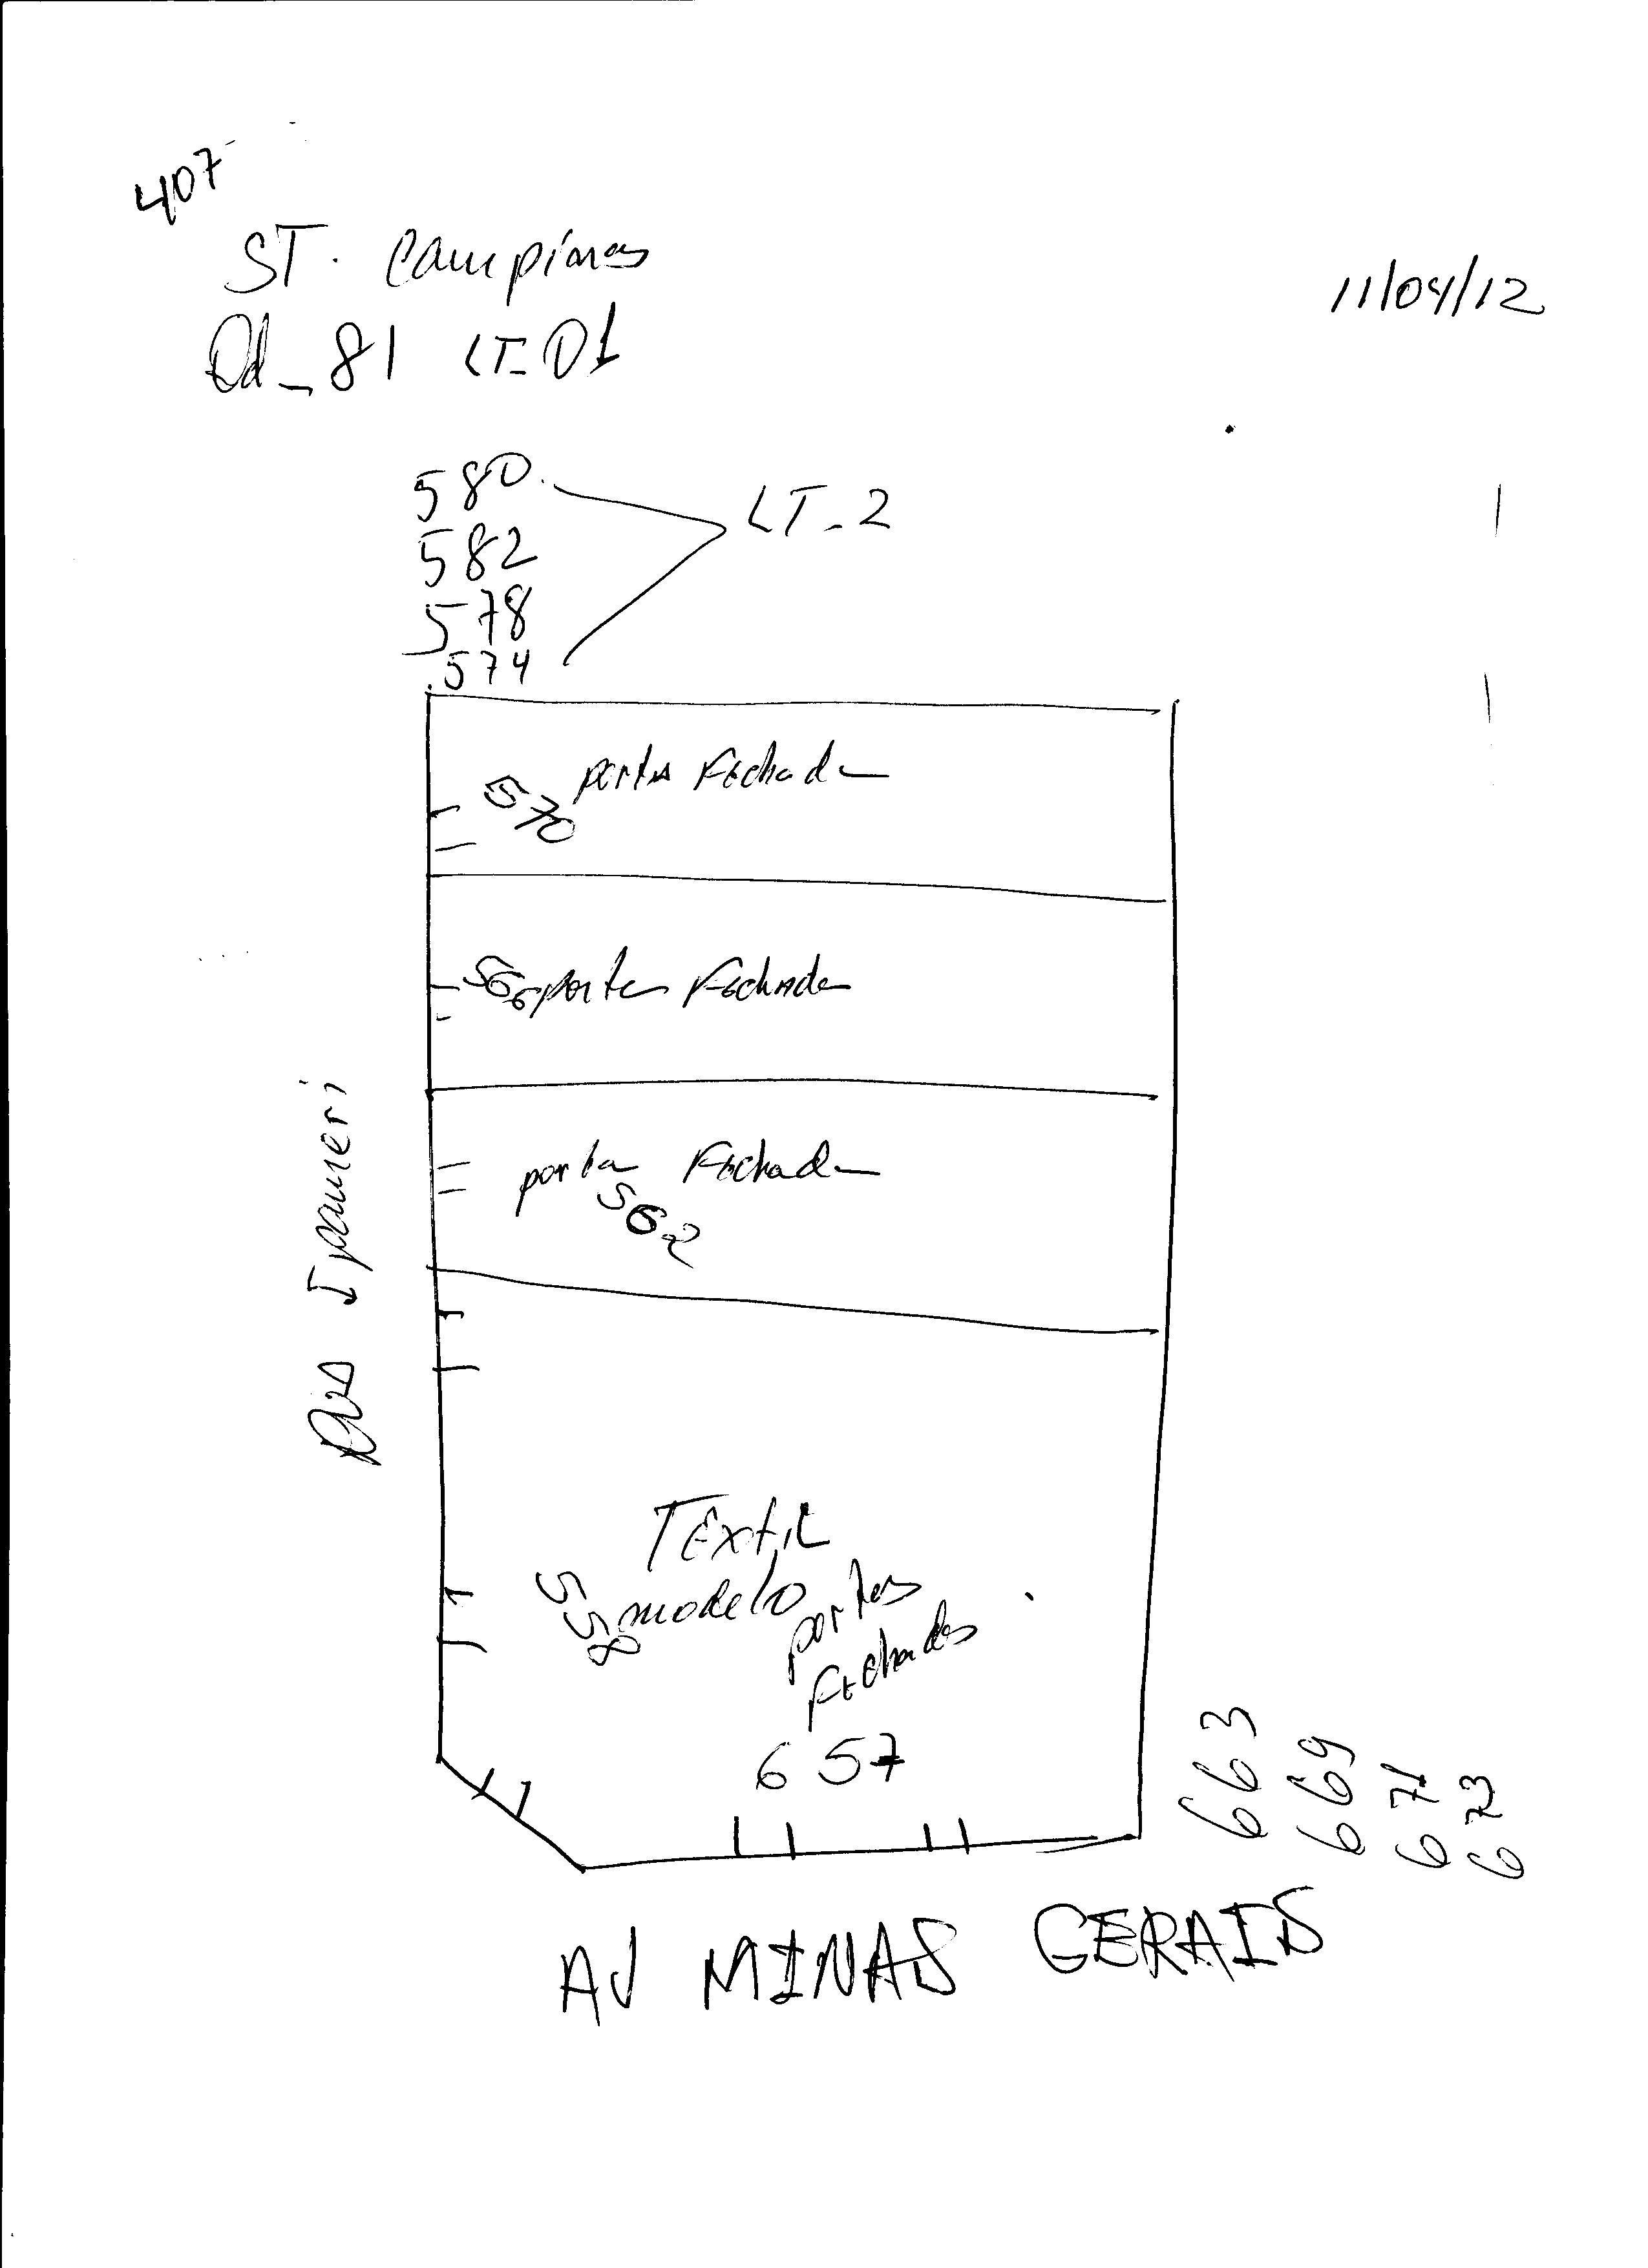 407
ST. Campinas
11/04/12
Qd_81 LT_01
580
582
578
574
LT_2
porta Fechada
570
566 porta Fechada
porta Fechada
562
Rua Ipameri
TExtiL
modelo
558
portas
Fechadas
657
663
669
671
673
AV MINAS GERAIS